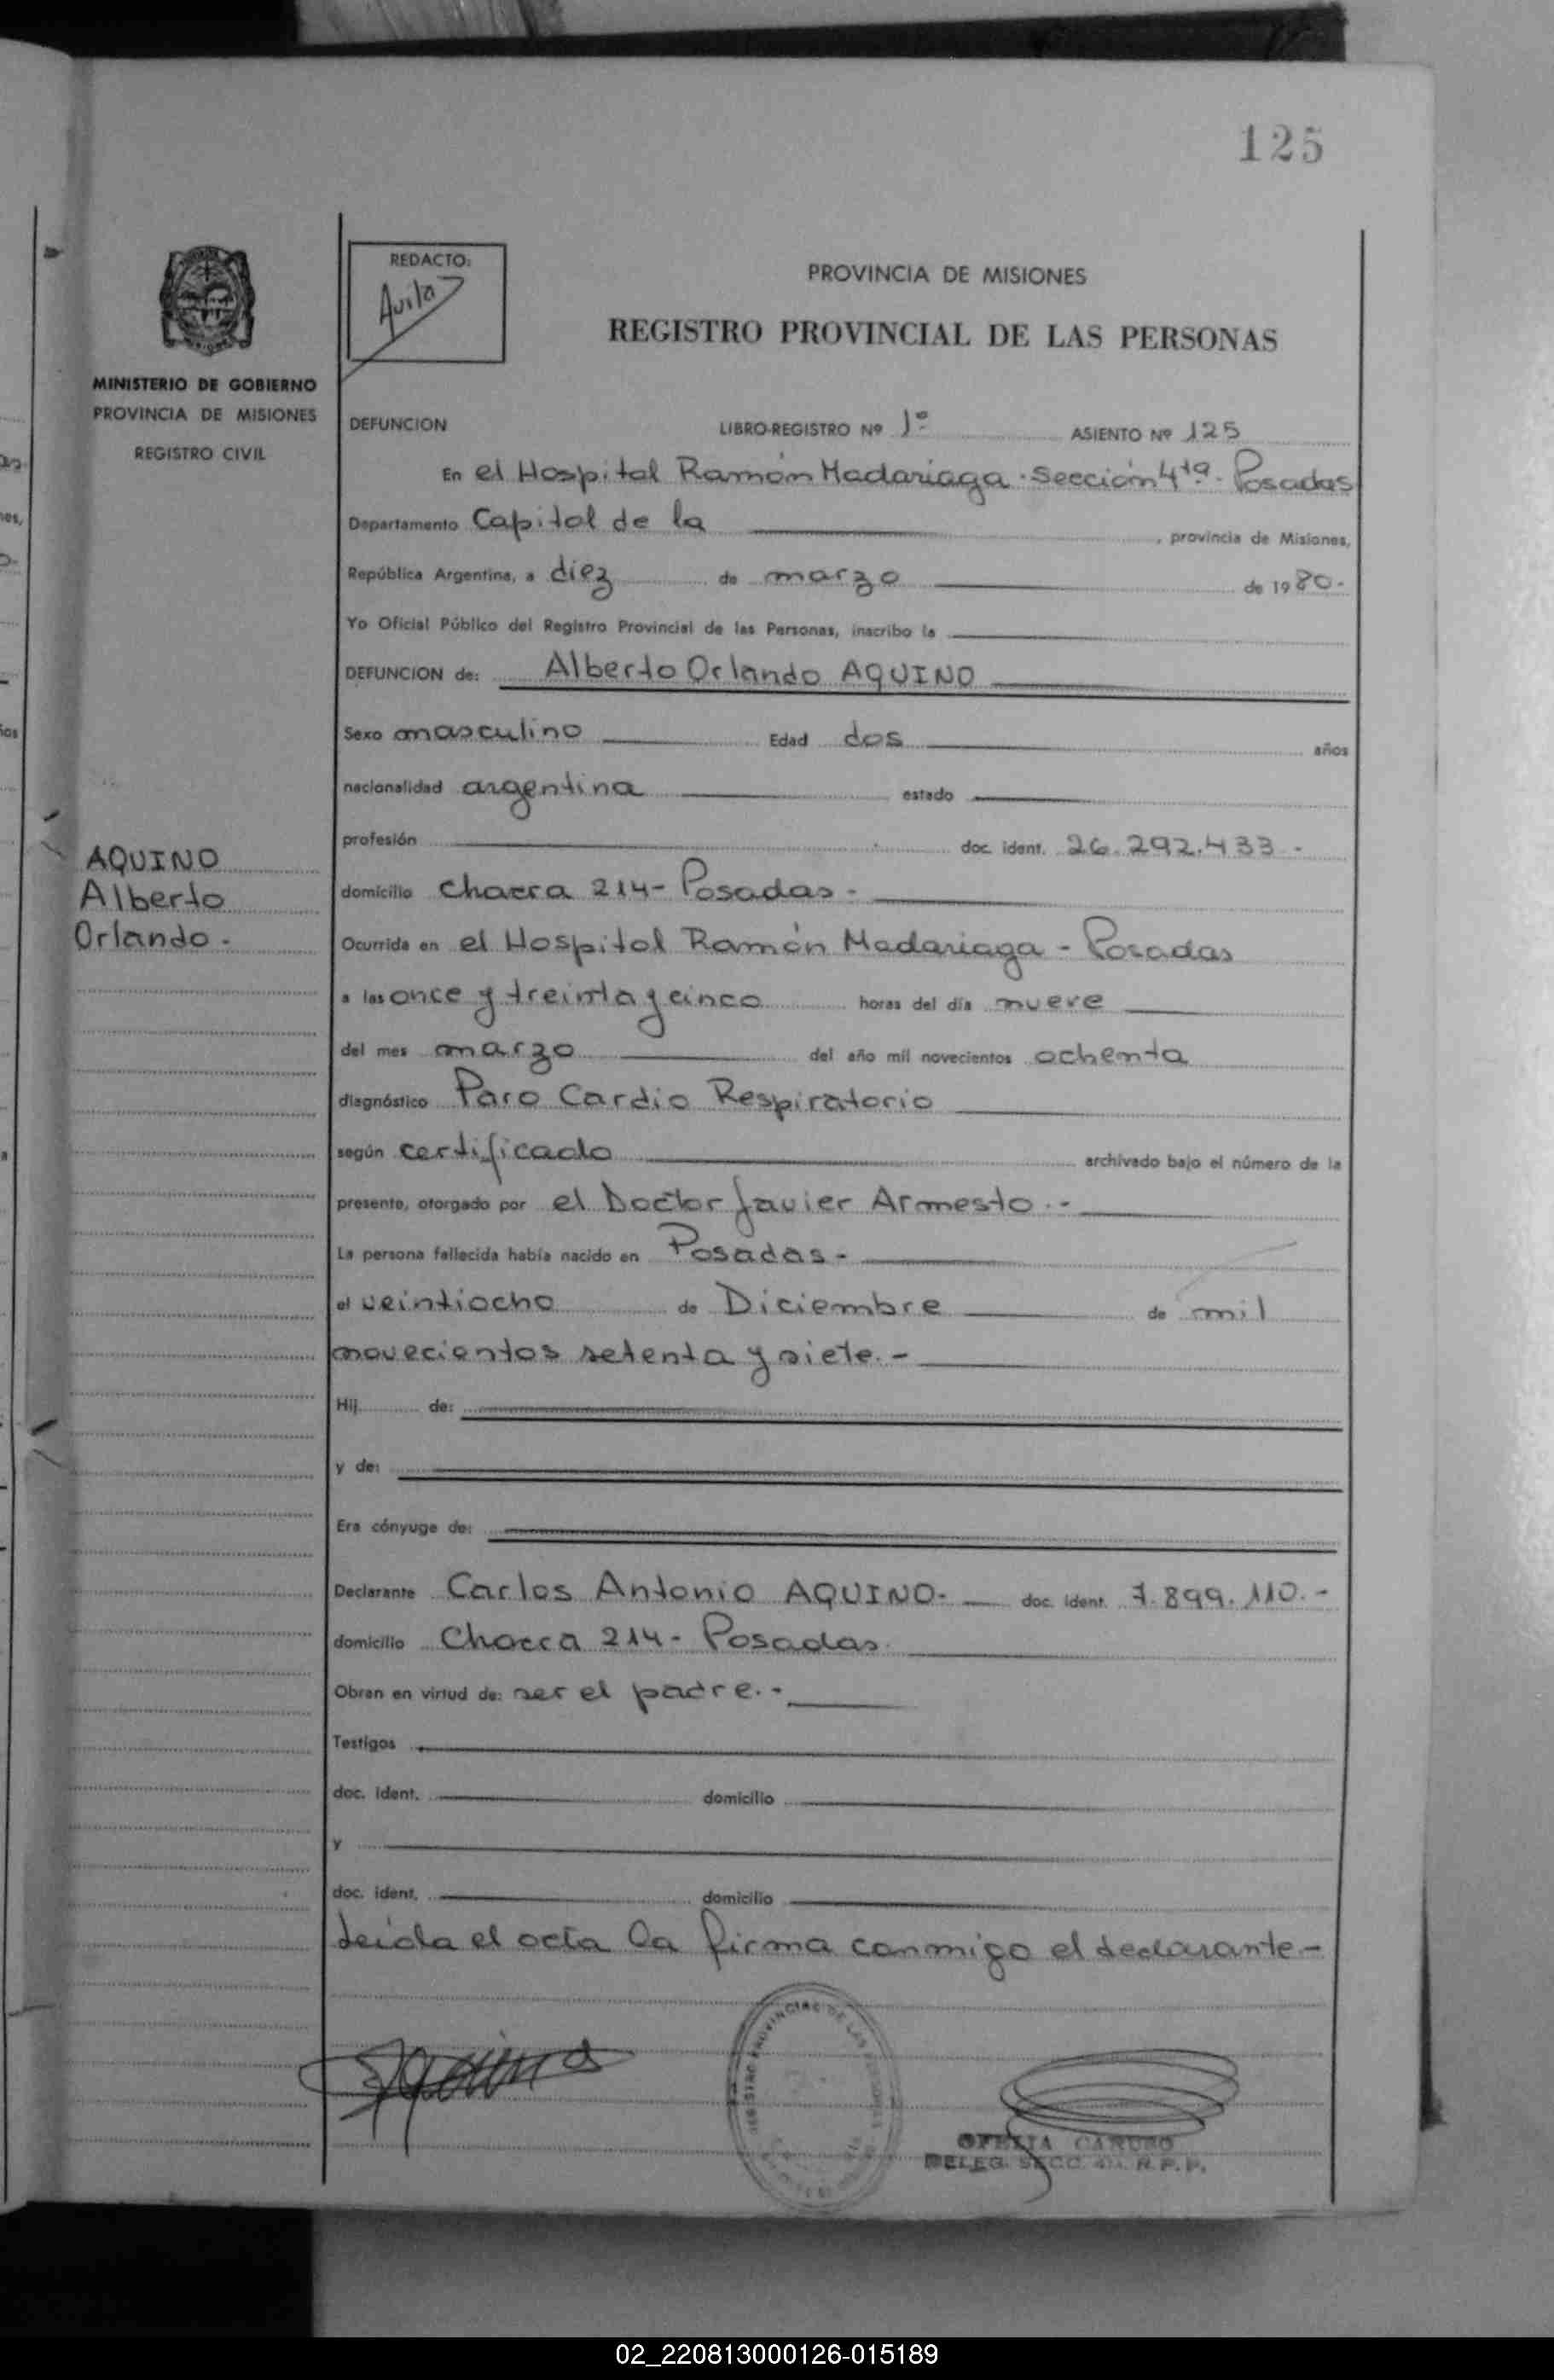 125
REDACTO:
Avila
MINISTERIO DE GOBIERNO
PROVINCIA DE MISIONES
REGISTRO CIVIL
PROVINCIA DE MISIONES
REGISTRO PROVINCIAL DE LAS PERSONAS
DEFUNCION LIBRO-REGISTRO Nº 1º ASIENTO Nº 125
En el Hospital Ramón Madariaga - Sección 4ta - Posadas
Departamento Capital de la , provincia de Misiones,
República Argentina, a diez de marzo de 1980.
Yo Oficial Público del Registro Provincial de las Personas, inscribo la
DEFUNCION de: Alberto Orlando AQUINO
Sexo masculino Edad dos años
nacionalidad argentina estado
profesión doc. ident. 26.292.433 -
AQUINO
Alberto
Orlando.
domicilio chacra 214 - Posadas -
Ocurrida en el Hospital Ramón Madariaga - Posadas
a las once y treinta y cinco horas del día nueve
del mes marzo del año mil novecientos ochenta
diagnóstico Paro Cardio Respiratorio
según certificado archivado bajo el número de la
presente, otorgado por el Doctor Javier Armesto.-
La persona fallecida había nacido en Posadas -
el veintiocho de Diciembre de mil
novecientos setenta y siete.-
Hij de:
y de:
Era cónyuge de:
Declarante Carlos Antonio AQUINO- doc. ident. 7.899.110.-
domicilio Chacra 214 - Posadas.
Obran en virtud de: ser el padre.-
Testigos
doc. ident. domicilio
y
doc. ident. domicilio
Leida el acta la firma conmigo el declarante.-
OFELIA CARUSO
DELEG. SECC. 4ta. R. P. P.
02_220813000126-015189